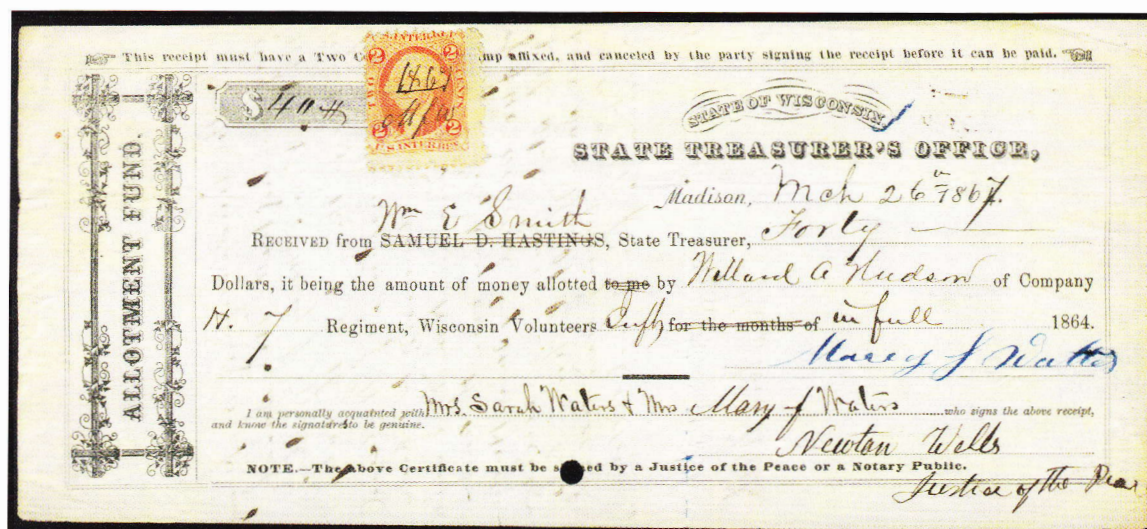 This receipt must have a Two C mp affixed, and canceled by the party signing the receipt before it can be paid.
U.S. INTER. REV.
2 2
TWO CENTS
1867
2 2
U.S. INTER. REV.
$ 40
ALLOTMENT FUND.
STATE OF WISCONSIN,
STATE TREASURER'S OFFICE,
Madison, Mch 26th 1867.
Wm E Smith
RECEIVED from SAMUEL D. HASTINGS, State Treasurer, Forty
Dollars, it being the amount of money allotted to me by Willard A Hudson of Company
H. 7 Regiment, Wisconsin Volunteers Inft for the months of in full 1864.
Mary J Watters
I am personally acquainted with Mrs. Sarah Waters & Mrs Mary J Waters who signs the above receipt,
and know the signature to be genuine.
Newton Wells
NOTE.—The above Certificate must be signed by a Justice of the Peace or a Notary Public.
Justice of the Peac